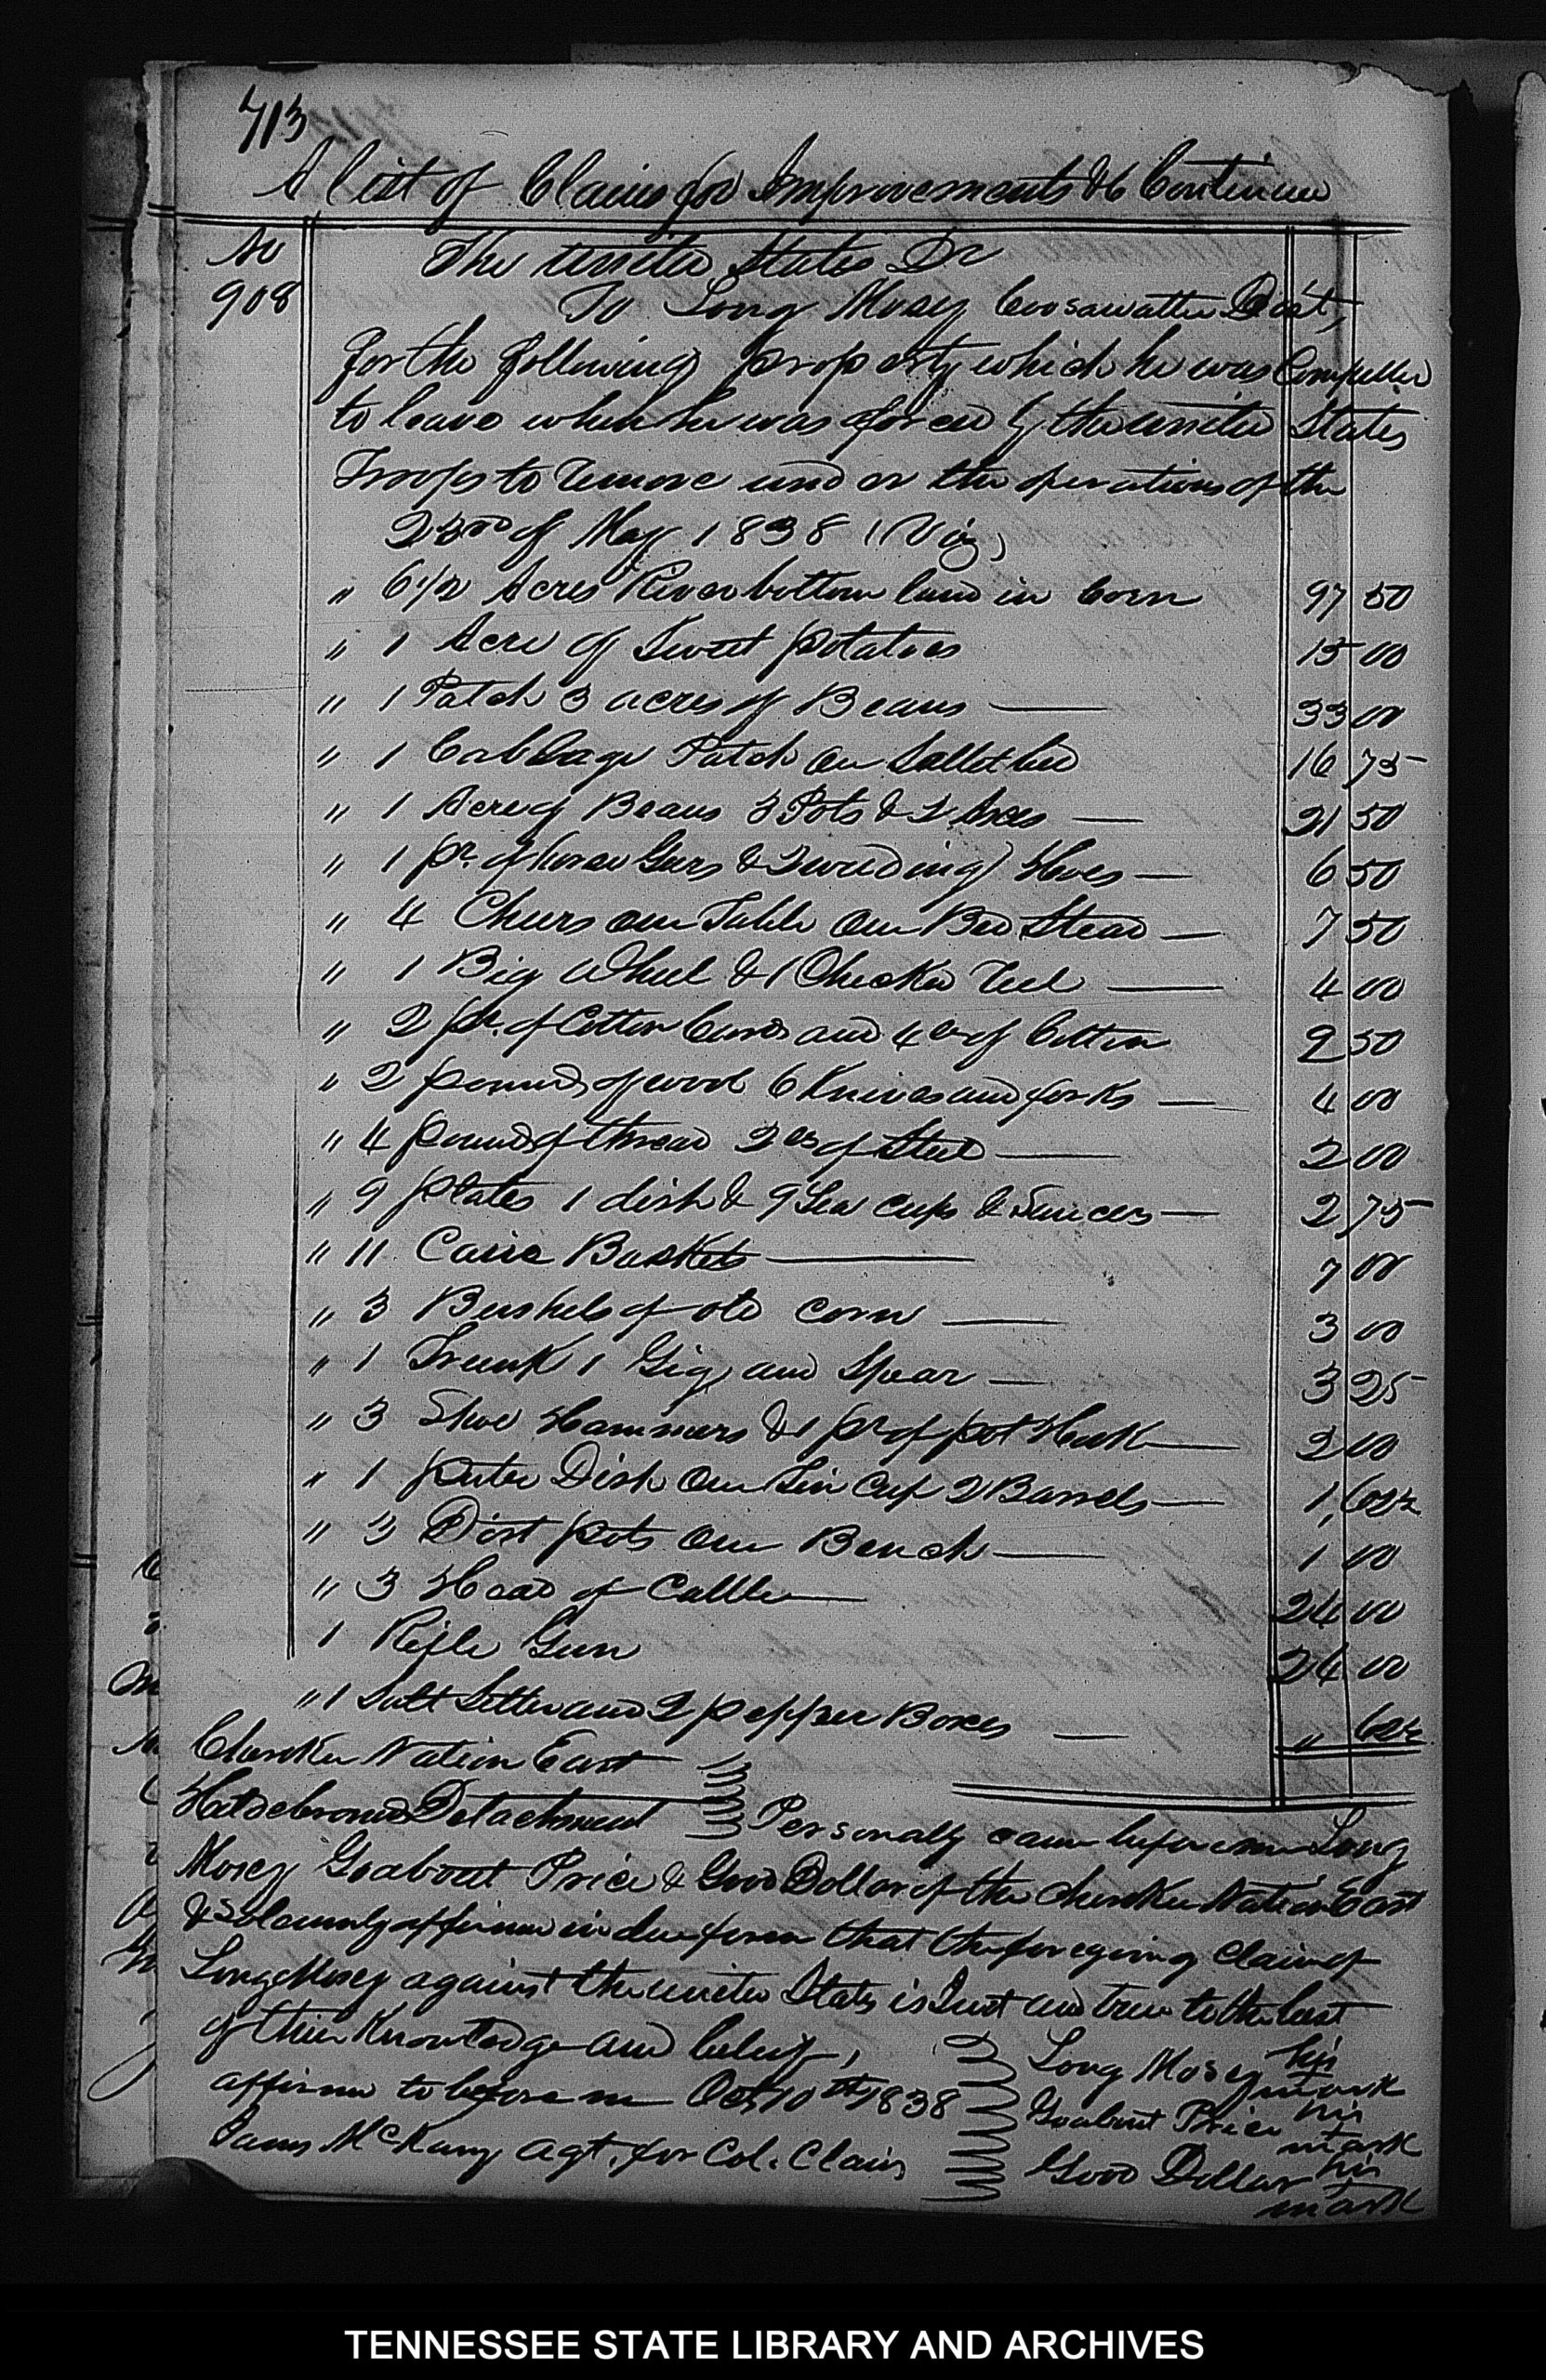 713
A list of Claims for Improvements &c Continued
No The United States Dr
908 To Long Mosey Coosawattee Dist,
for the following property which he was Compelled
to leave when he was forced by the United States
Troops to remove under the operations of the
23rd of May 1838 (Viz)
" 6 1/2 Acres River bottom land in Corn 97 50
" 1 Acre of Sweet potatoes 15 00
" 1 Patch 3 acres of Beans 33 00
" 1 Cabbage Patch One Sallet bed 16 75
" 1 Acre of Beans 3 Pots & 2 Axes 21 50
" 1 pr. of horse Gears & 2 weeding Hoes 6 50
" 4 Cheers one Table One Bed Stead 7 50
" 1 Big Wheel & 1 Checked reel 4 00
" 2 pr. of Cotton Cards and 4 of Cotton 2 50
" 2 pounds of wool 6 Knives and forks 4 00
" 4 pounds of thread 2 lbs of Steel 2 00
" 9 plates 1 dish & 9 Tea cups & Sauces 2 75
" 11 Caine Baskets 7 00
" 3 Bushels of old corn 3 00
" 1 Trunk 1 Gig and Spear 3 25
" 3 Shoe Hammers & 1 pr of pot Hook 2 00
" 1 puter Dish One Tin Cup 2 Barrels 1,62 1/2
" 3 Dirt pots One Bench 1 00
" 3 Head of Cattle 24 00
1 Rifle Gun 24 00
" 1 Salt Setter and 2 pepper Boxes " 62 1/2
Cherokee Nation East
Hildebrands Detachment Personally came before me Long
Mosey Goabout Price & Good Dollar of the Cherokee Nation East
& Solemnly affirmed in due form that the foregoing claim of
Long Mosey against the United States is Just and true to the best
of their Knowledge and belief,
affirmed to before me Oct 10th 1838
James McKamy agt. for Col. Claims
Long Mosey his mark
Goabout Price his mark
Good Dollar his mark
TENNESSEE STATE LIBRARY AND ARCHIVES